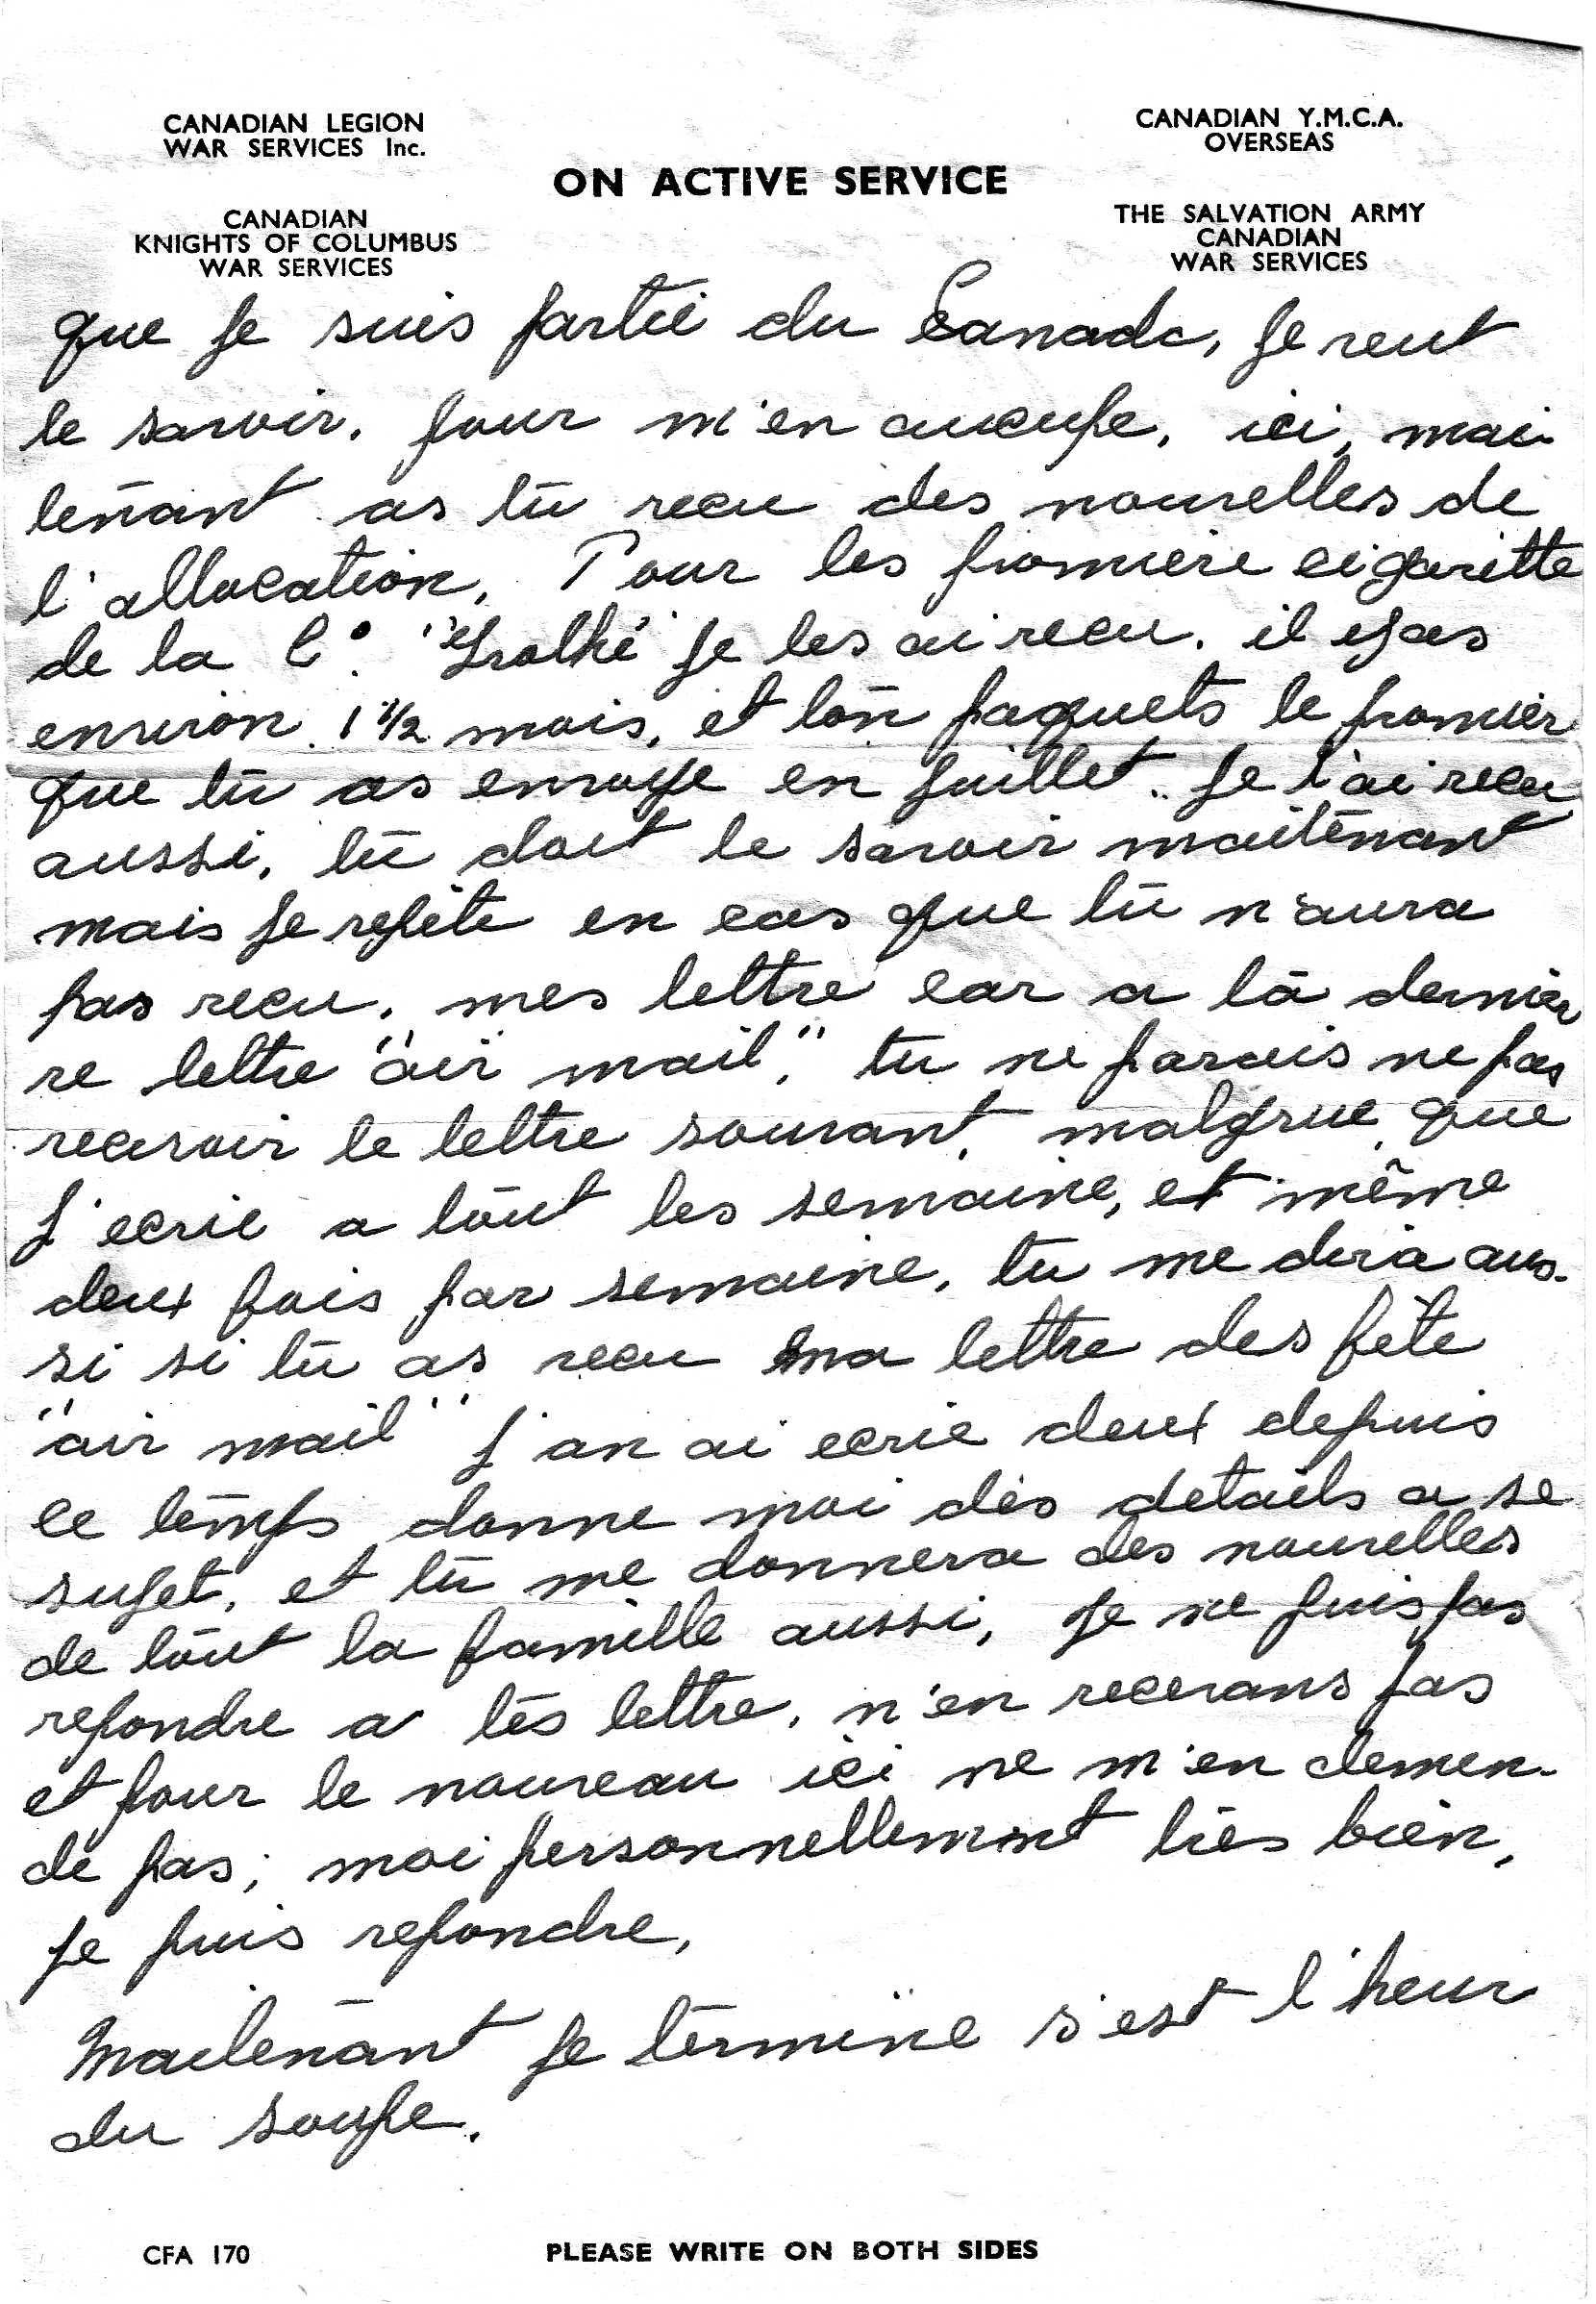 CANADIAN LEGION
WAR SERVICES Inc.
CANADIAN
KNIGHTS OF COLUMBUS
WAR SERVICES
ON ACTIVE SERVICE
CANADIAN Y.M.C.A.
OVERSEAS
THE SALVATION ARMY
CANADIAN
WAR SERVICES
que je suis partie du Canada, je veut
le savoir, pour m'en aucupe, ici, mai-
tenant as tu recu des nouvelles de
l'allocation, Pour les promiere cigaritte
de la Co. je les ai recu. il y as
environ 1 1/2 mois, et ton paquets le promier
que tu as envoye en juillet. je l'ai recu
aussi, tu doit le savoir maitenant
mais je repete en cas que tu n'aura
pas recu. mes lettre car a la derniè
re lettre "air mail", tu ne parais ne pas
recevoir le lettre souvant, malgrue que
j'ecrie a tout les semaine, et même
deux fois par semaine, tu me dira aus-
si si tu as recu ma lettre des fête
"air mail" j'an ai ecrie deux depuis
ce temps donne moi des details a se
sujet, et tu me donnera des nouvelles
de tout la famille aussi, je ne puis pas
repondre a tes lettre, n'en recevans pas
et pour le nouveau ici ne m'en demen-
de pas; moi personnellement tres bien,
je puis repondre,
Maitenant je termine s'est l'heur
du soupe.
CFA 170
PLEASE WRITE ON BOTH SIDES